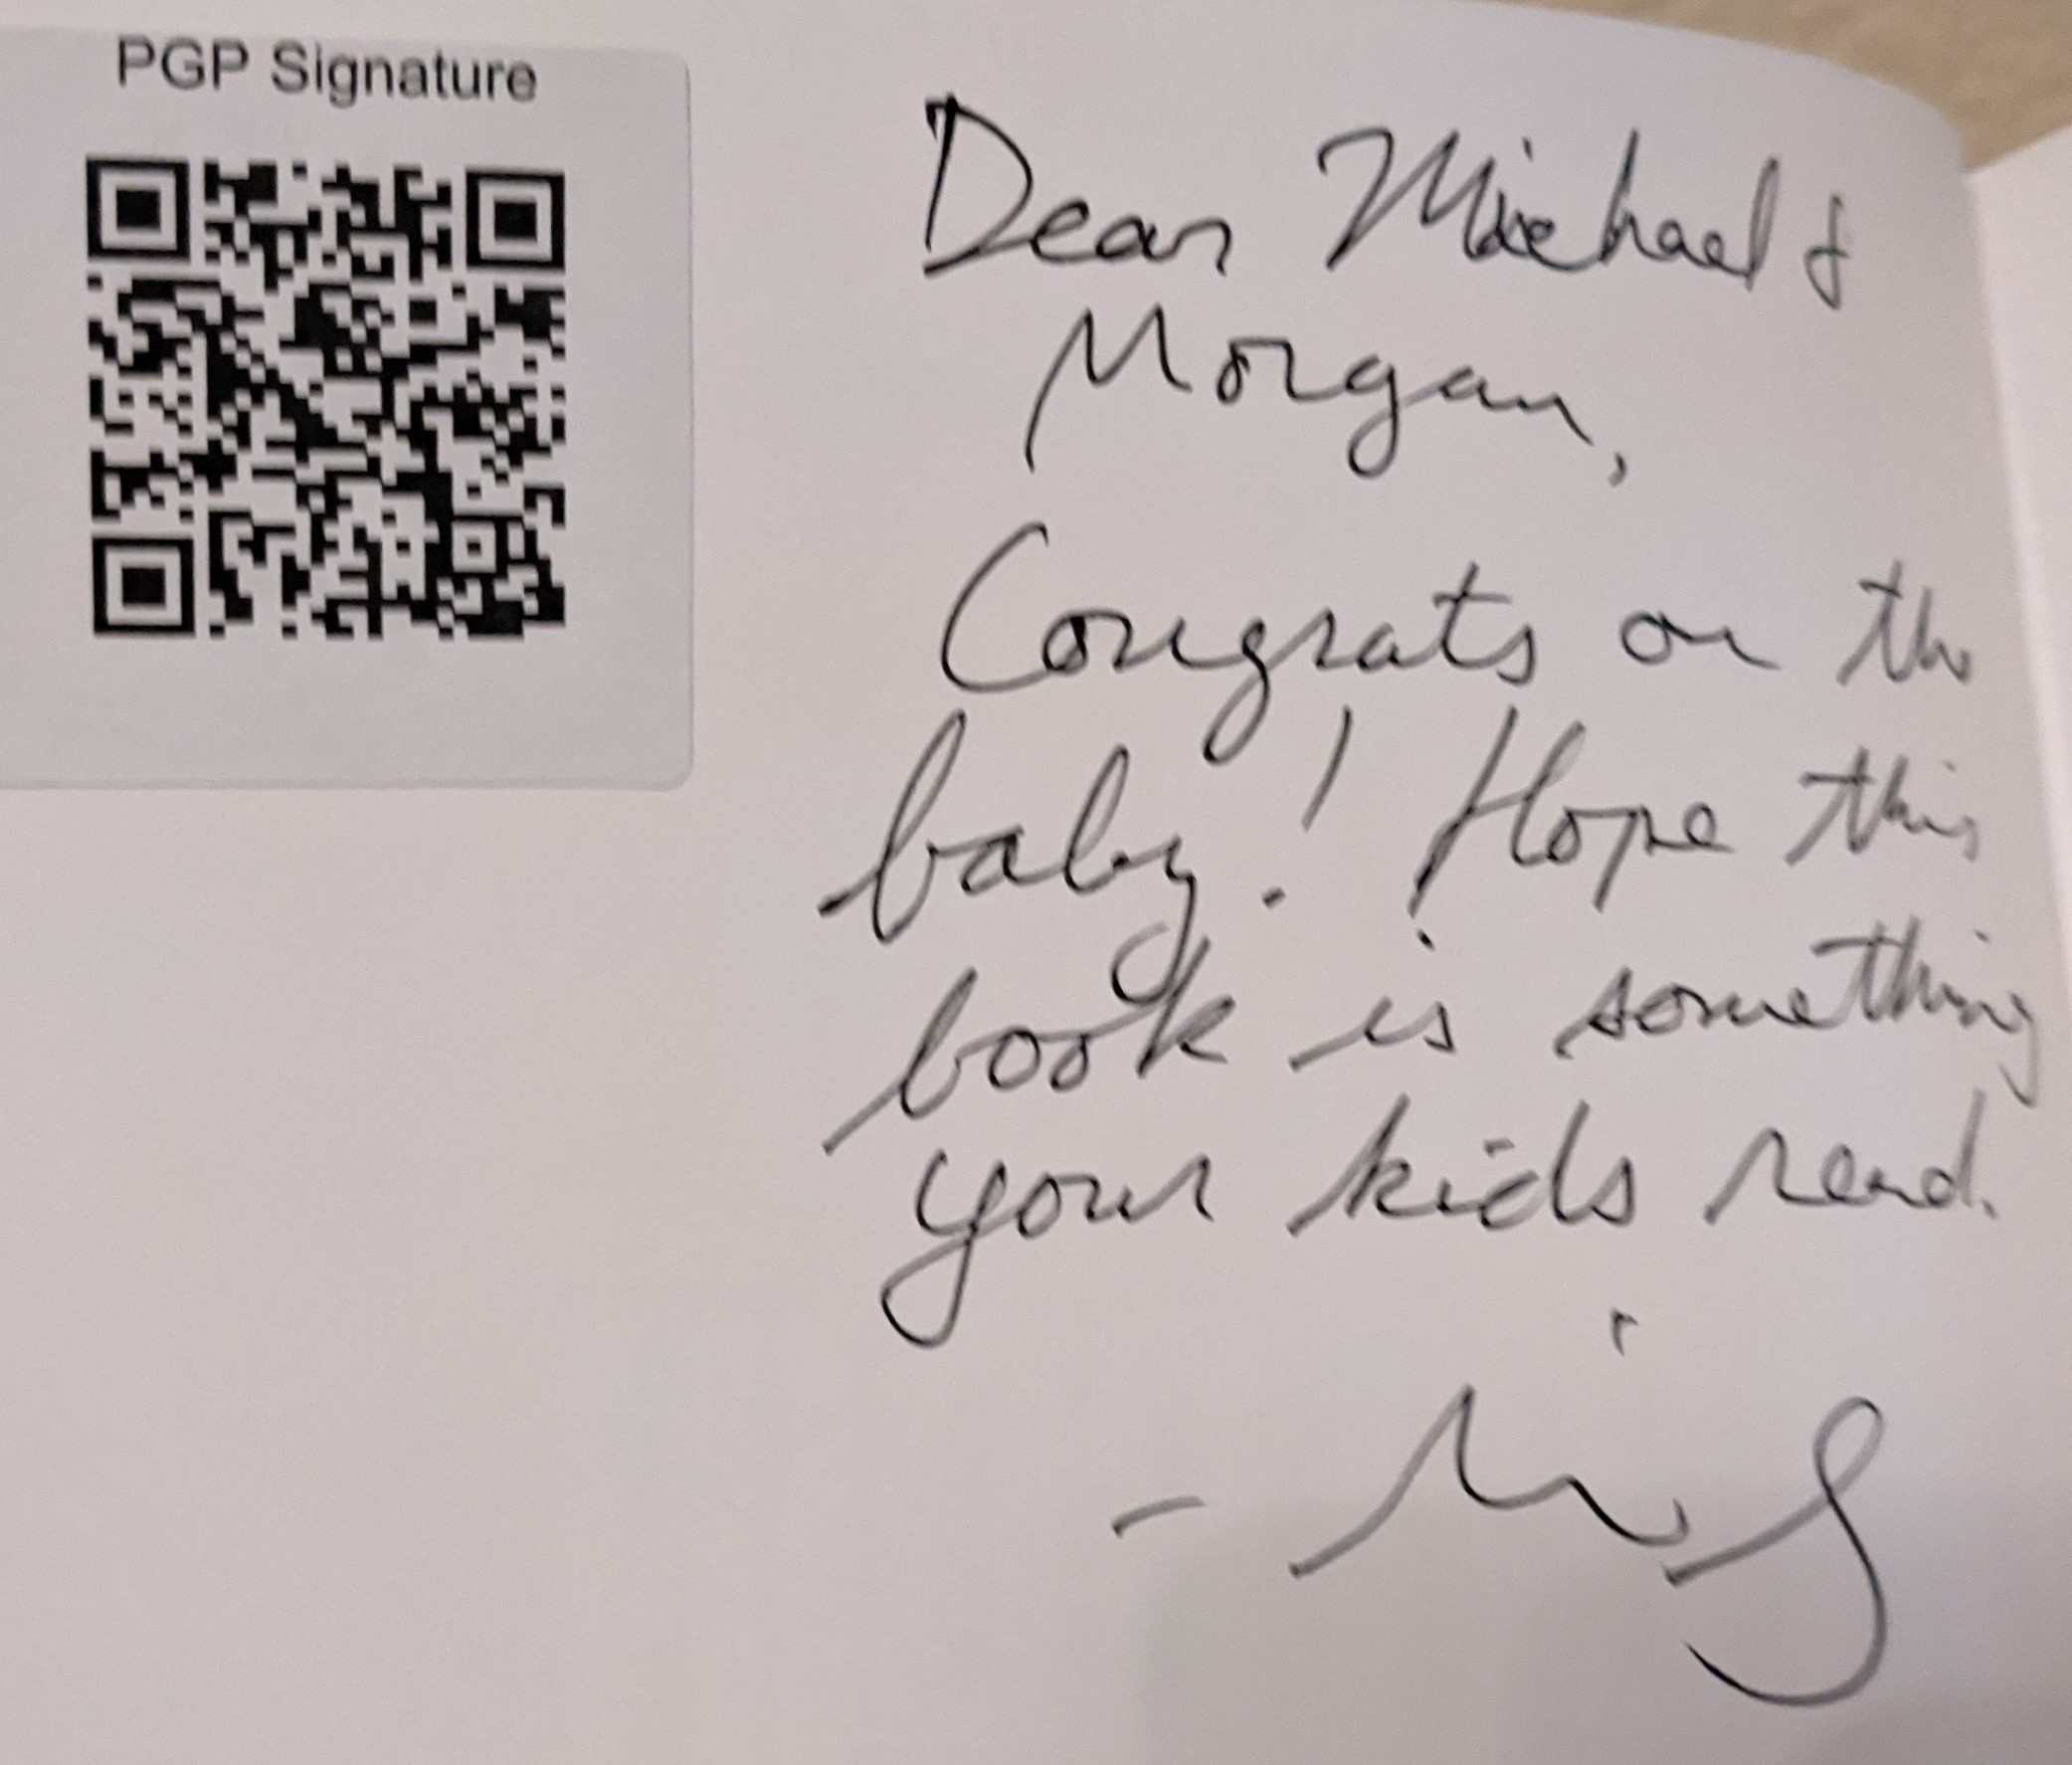 PGP Signature
Dear Michael &
Morgan,
Congrats on the
baby! Hope this
book is something
your kids read.